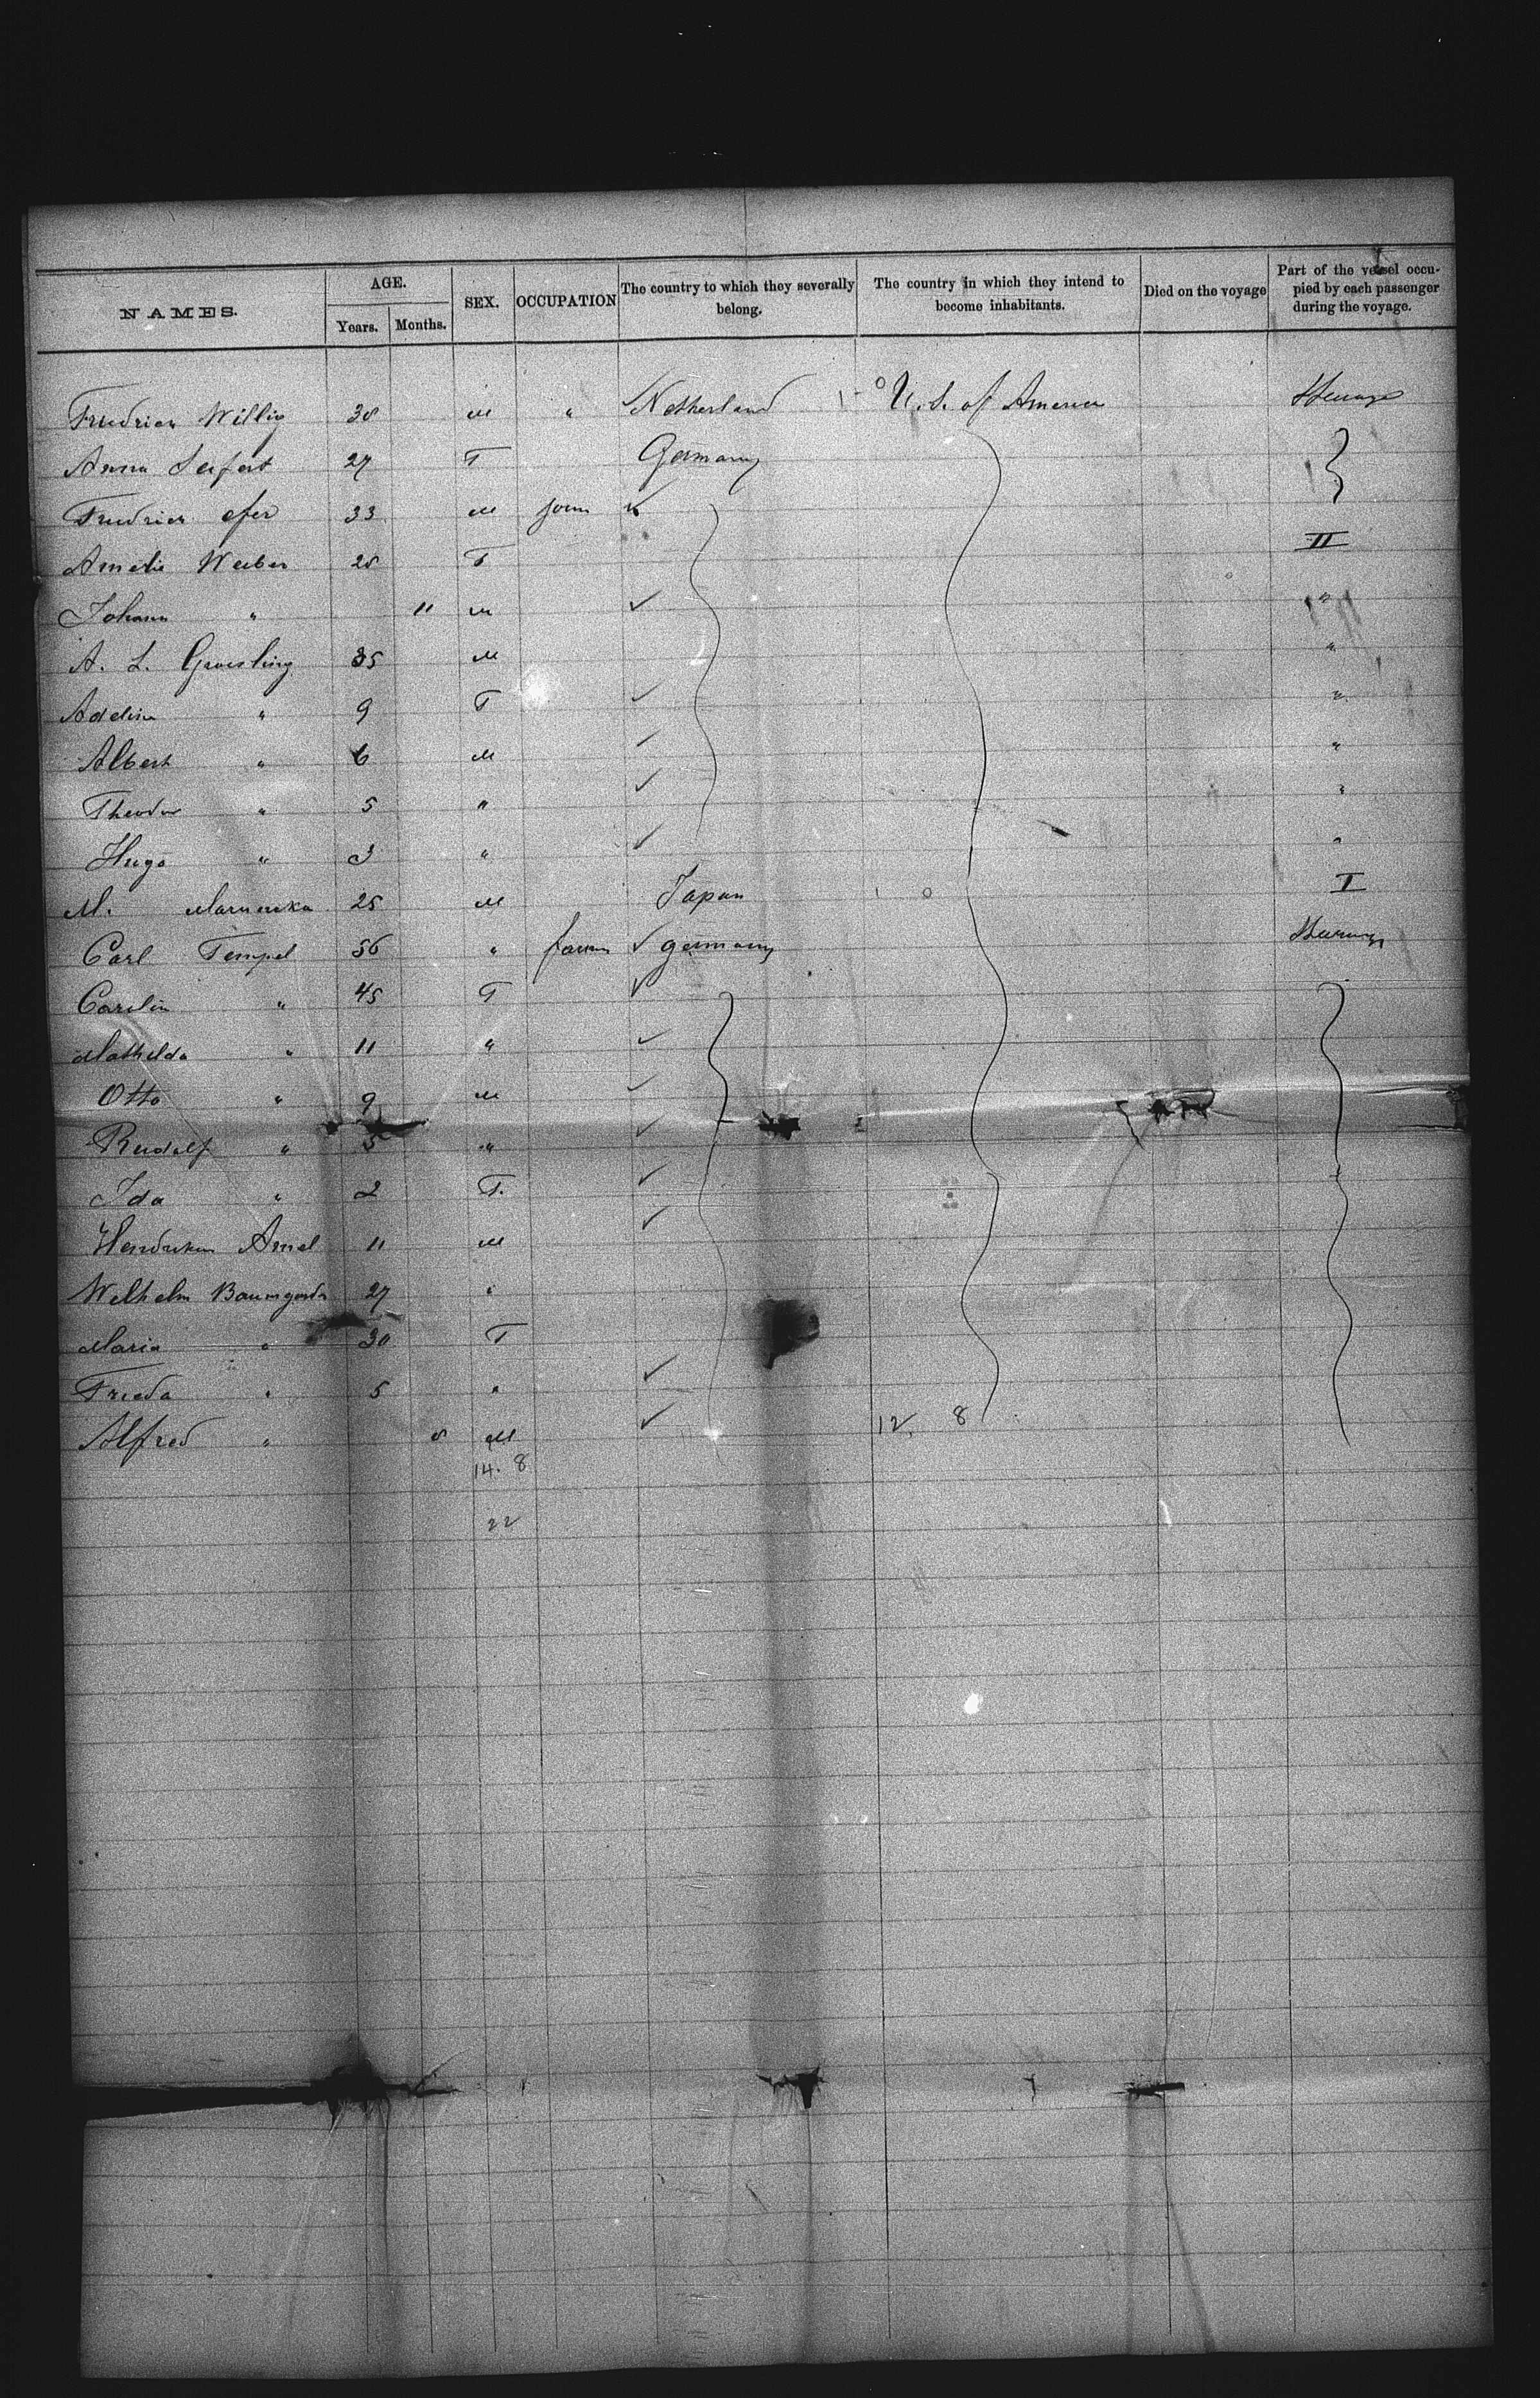 NAMES. AGE. Years. Months. SEX. OCCUPATION The country to which they severally belong. The country in which they intend to become inhabitants. Died on the voyage Part of the vessel occupied by each passenger during the voyage.
Willig 38 M " Netherland U. S. of America
Anna Seifert 27 F Germany
33 M
Amelie Weber 28 F II
Johann " 11 M "
A. L. 35 M "
Adeline " 9 F "
Albert " 6 M "
Theodor " 5 " "
Hugo " 3 " "
M. 25 M Japan I
Carl Tempel 56 " farm Germany
Carolin " 45 F
Mathilda " 11 "
Otto " 9 M
Rudolf " 5 "
Ida " 2 F.
11 M
Wilhelm 27 "
Maria " 30 F
Frieda " 5 "
Alfred " 8 M 12. 8
14. 8
22